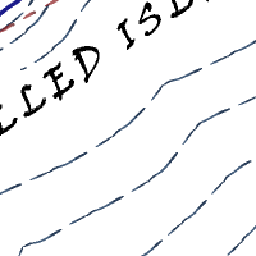 LLED ISL